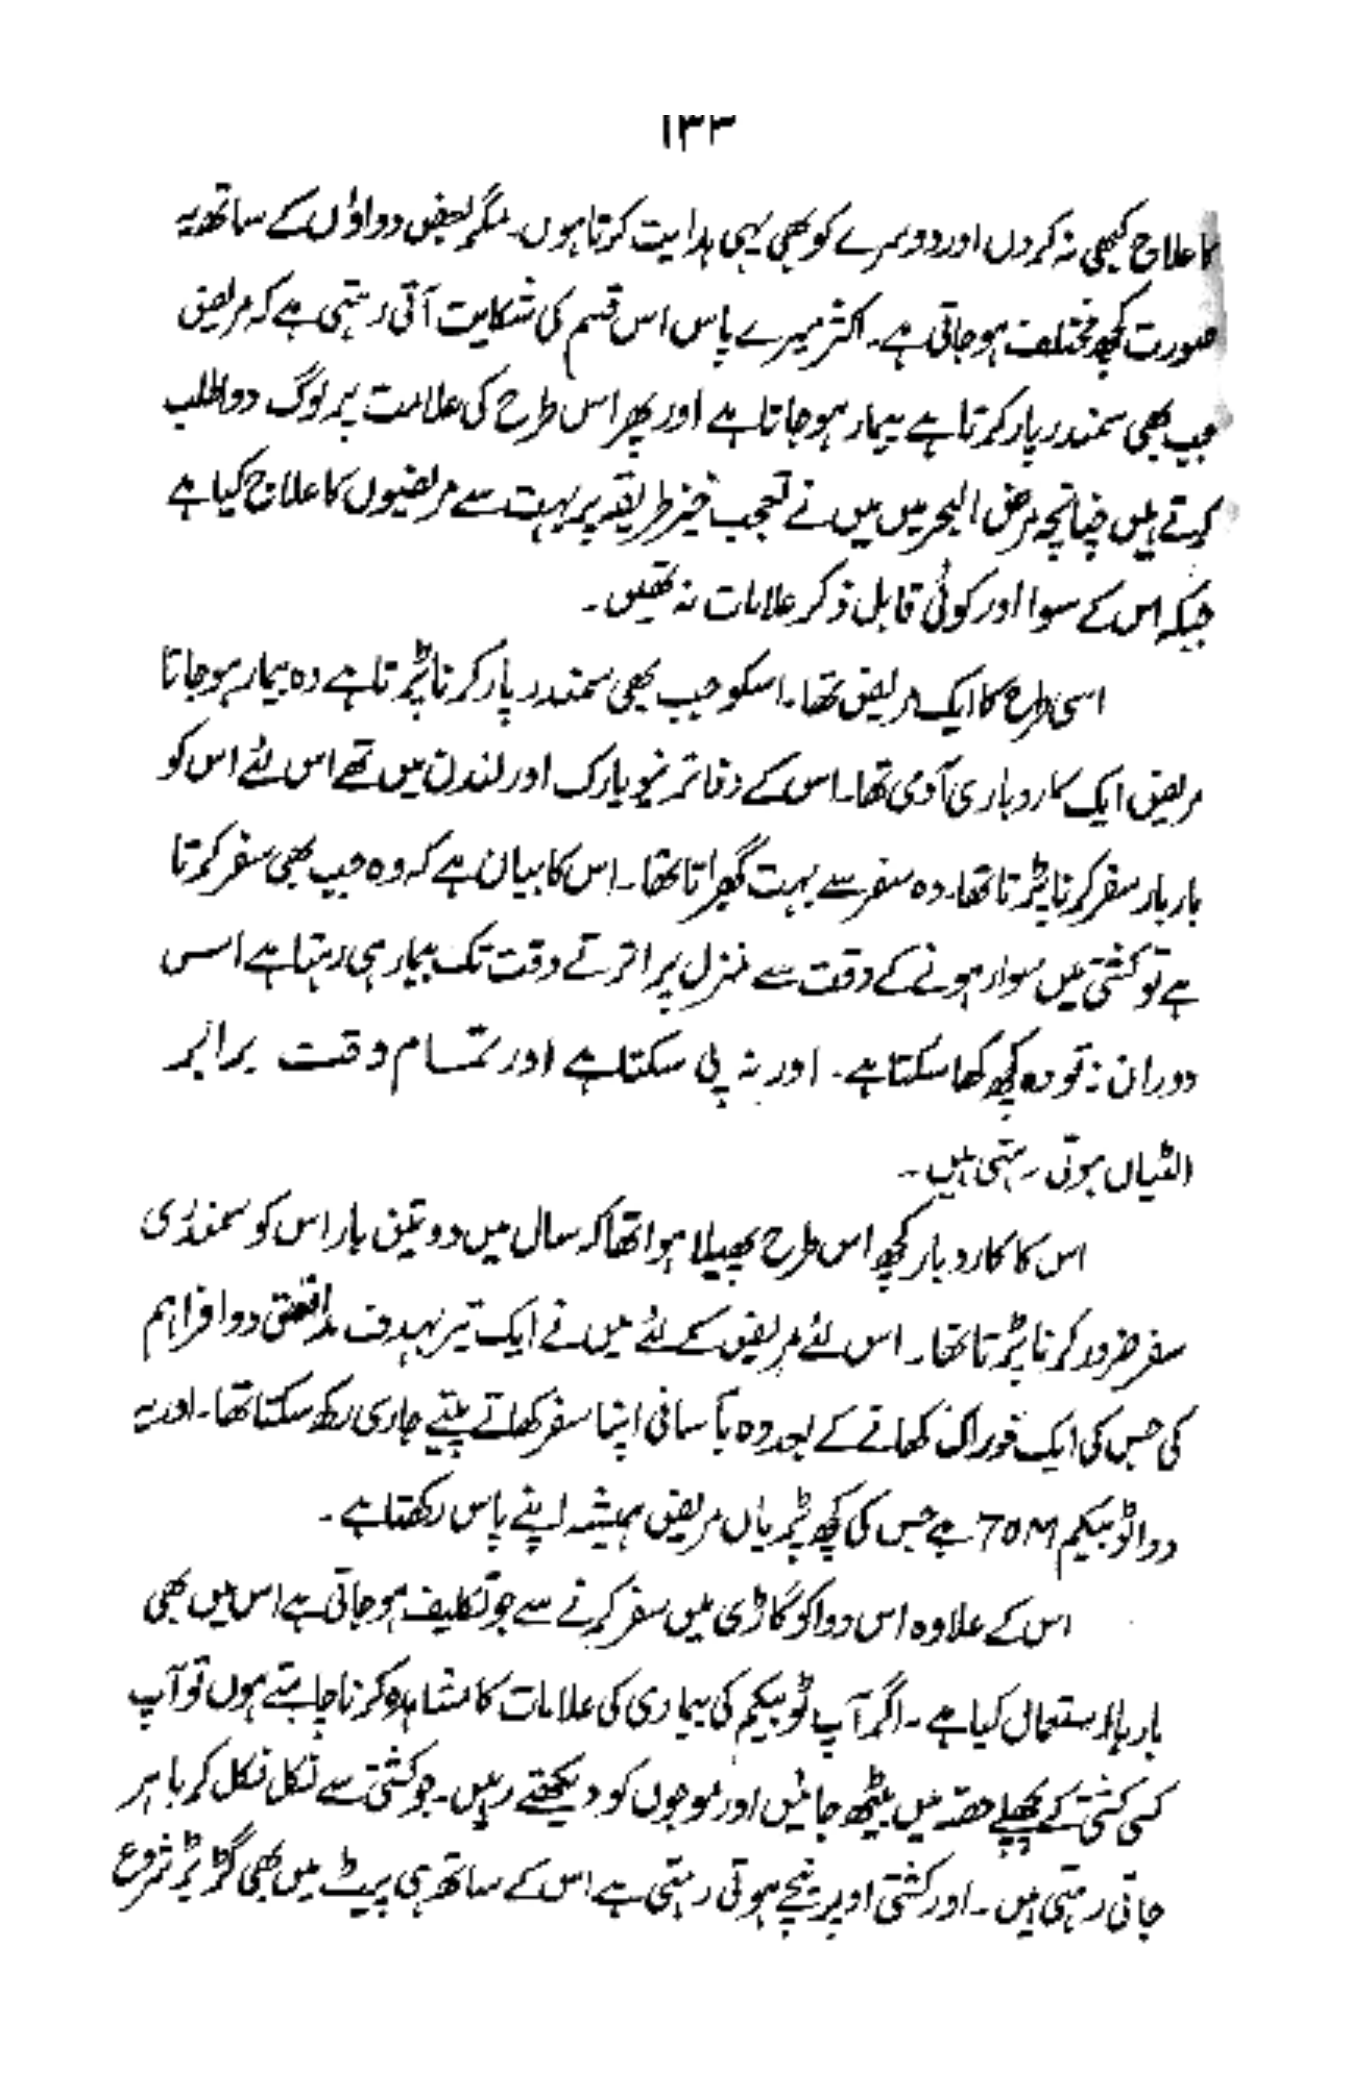 ۱۳۳
کا علاج کبھی نہ کروں اور دوسرے کو بھی یہی ہدایت کرتا ہوں۔ مگر بعض دواؤں کے ساتھ یہ
صورت کچھ مختلف ہو جاتی ہے۔ اکثر میرے پاس اس قسم کی شکایت آتی رہتی ہے کہ مریض
جب بھی سمندر پار کرتا ہے بیمار ہو جاتا ہے اور پھر اس طرح کی علامت پر لوگ دوا طلب
کرتے ہیں چنانچہ مرض البحر میں میں نے تعجب خیز طریقہ پر بہت سے مریضیوں کا علاج کیا ہے
جبکہ اس کے سوا اور کوئی قابل ذکر علامات نہ تھیں۔
اسی طرح کا ایک مریض تھا۔ اسکو جب بھی سمندر پار کرنا پڑتا ہے وہ بیمار ہو جاتا
مریض ایک کاروباری آدمی تھا۔ اس کے دفاتر نیویارک اور لندن میں تھے اس لئے اس کو
بار بار سفر کرنا پڑتا تھا۔ وہ سفر سے بہت گھبراتا تھا۔ اس کا بیان ہے کہ وہ جب بھی سفر کرتا
ہے تو کشتی میں سوار ہونے کے وقت سے منزل پر اترتے وقت تک بیمار ہی رہتا ہے اس
دوران نہ تو وہ کچھ کھا سکتا ہے۔ اور نہ پی سکتا ہے اور تمام وقت برابر
الٹیاں ہوتی رہتی ہیں۔
اس کا کاروبار کچھ اس طرح پھیلا ہوا تھا کہ سال میں دو تین بار اس کو سمندری
سفر ضرور کرنا پڑتا تھا۔ اس لئے مریض کے لئے میں نے ایک تیر بہدف مدافعتی دوا فراہم
کی جس کی ایک خوراک کھانے کے بعد وہ بآسانی اپنا سفر کھاتے پیتے جاری رکھ سکتا تھا۔ اور یہ
دوا ٹوبیکم 70M ہے جس کی کچھ پڑیاں مریض ہمیشہ اپنے پاس رکھتا ہے۔
اس کے علاوہ اس دوا کو گاڑی میں سفر کرنے سے جو تکلیف ہو جاتی ہے اس میں بھی
بارہا استعمال کیا ہے۔ اگر آپ ٹوبیکم کی بیماری کی علامات کا مشاہدہ کرنا چاہتے ہوں تو آپ
کسی کشتی کے پچھلے حصہ میں بیٹھ جائیں اور موجوں کو دیکھتے رہیں۔ جو کشتی سے نکل نکل کر باہر
جاتی رہتی ہیں۔ اور کشتی اوپر نیچے ہوتی رہتی ہے اس کے ساتھ ہی پیٹ میں بھی گڑ بڑ شروع